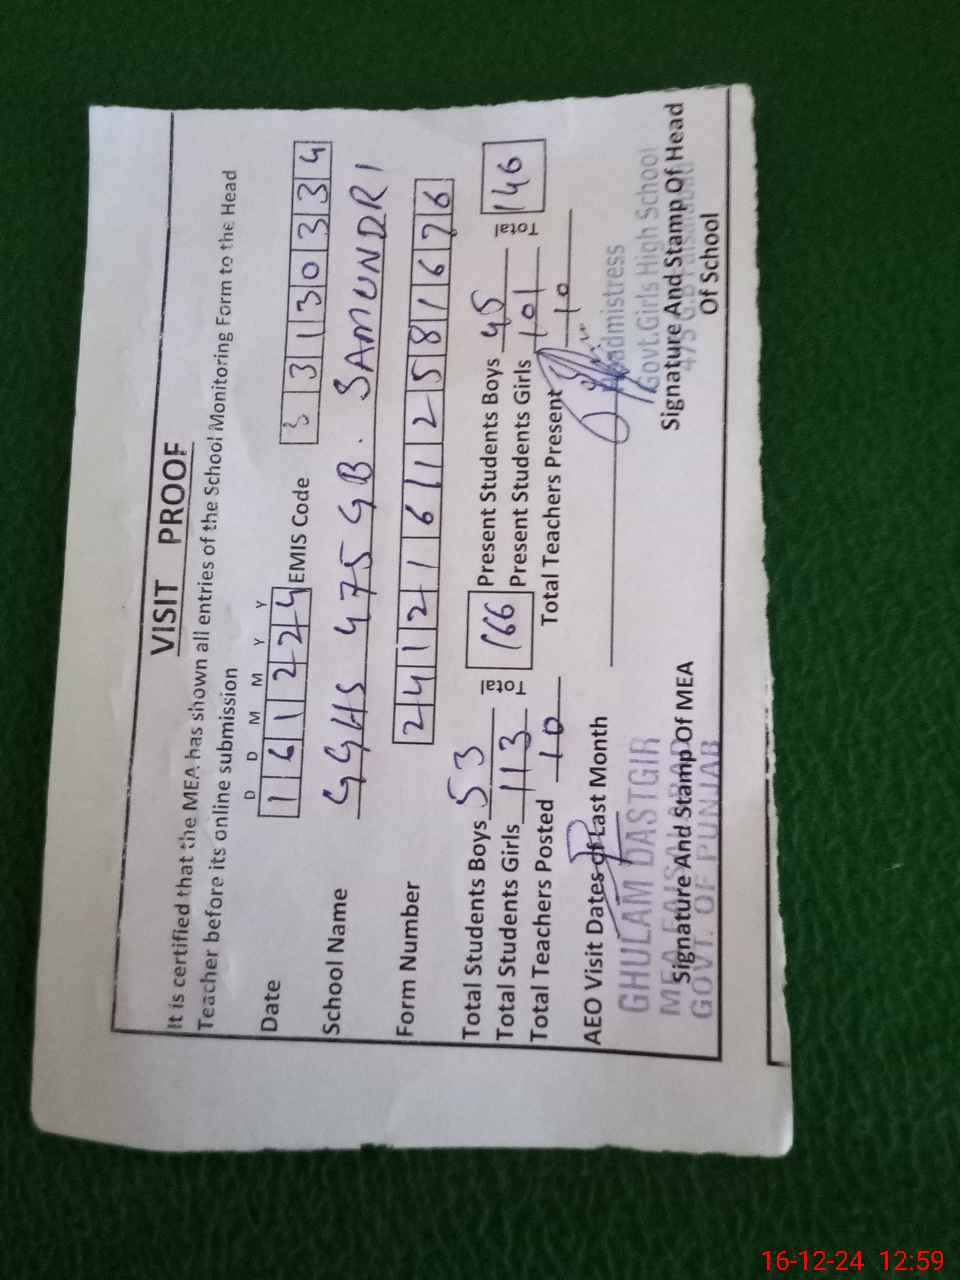 VISIT PROOF
It is certified that the MEA has shown all entries of the School Monitoring Form to the Head
Teacher before its online submission
D D M M Y Y
Date 161224 EMIS Code 33130334
School Name GGHS 475 GB. SAMUNDRI
Form Number 241216112581676
Total Students Boys 53 Total 166 Present Students Boys 45 Total 146
Total Students Girls 113 Present Students Girls 101
Total Teachers Posted 10 Total Teachers Present 10
AEO Visit Dates of Last Month
GHULAM DASTGIR
MEA FAISALABAD
Signature And Stamp Of MEA
GOVT. OF PUNJAB
Headmistress
Govt.Girls High School
475 G.B Faisalabad
Signature And Stamp Of Head
Of School
16-12-24 12:59